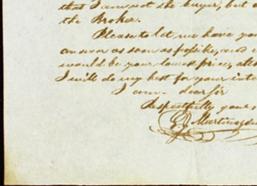 that I am not the buyer, but
the Broker.
Please to let me have your
answer as soon as possible, and
would be your lowest price, also
I will do my best for your inte
I am dear Sir
Respectfully yours